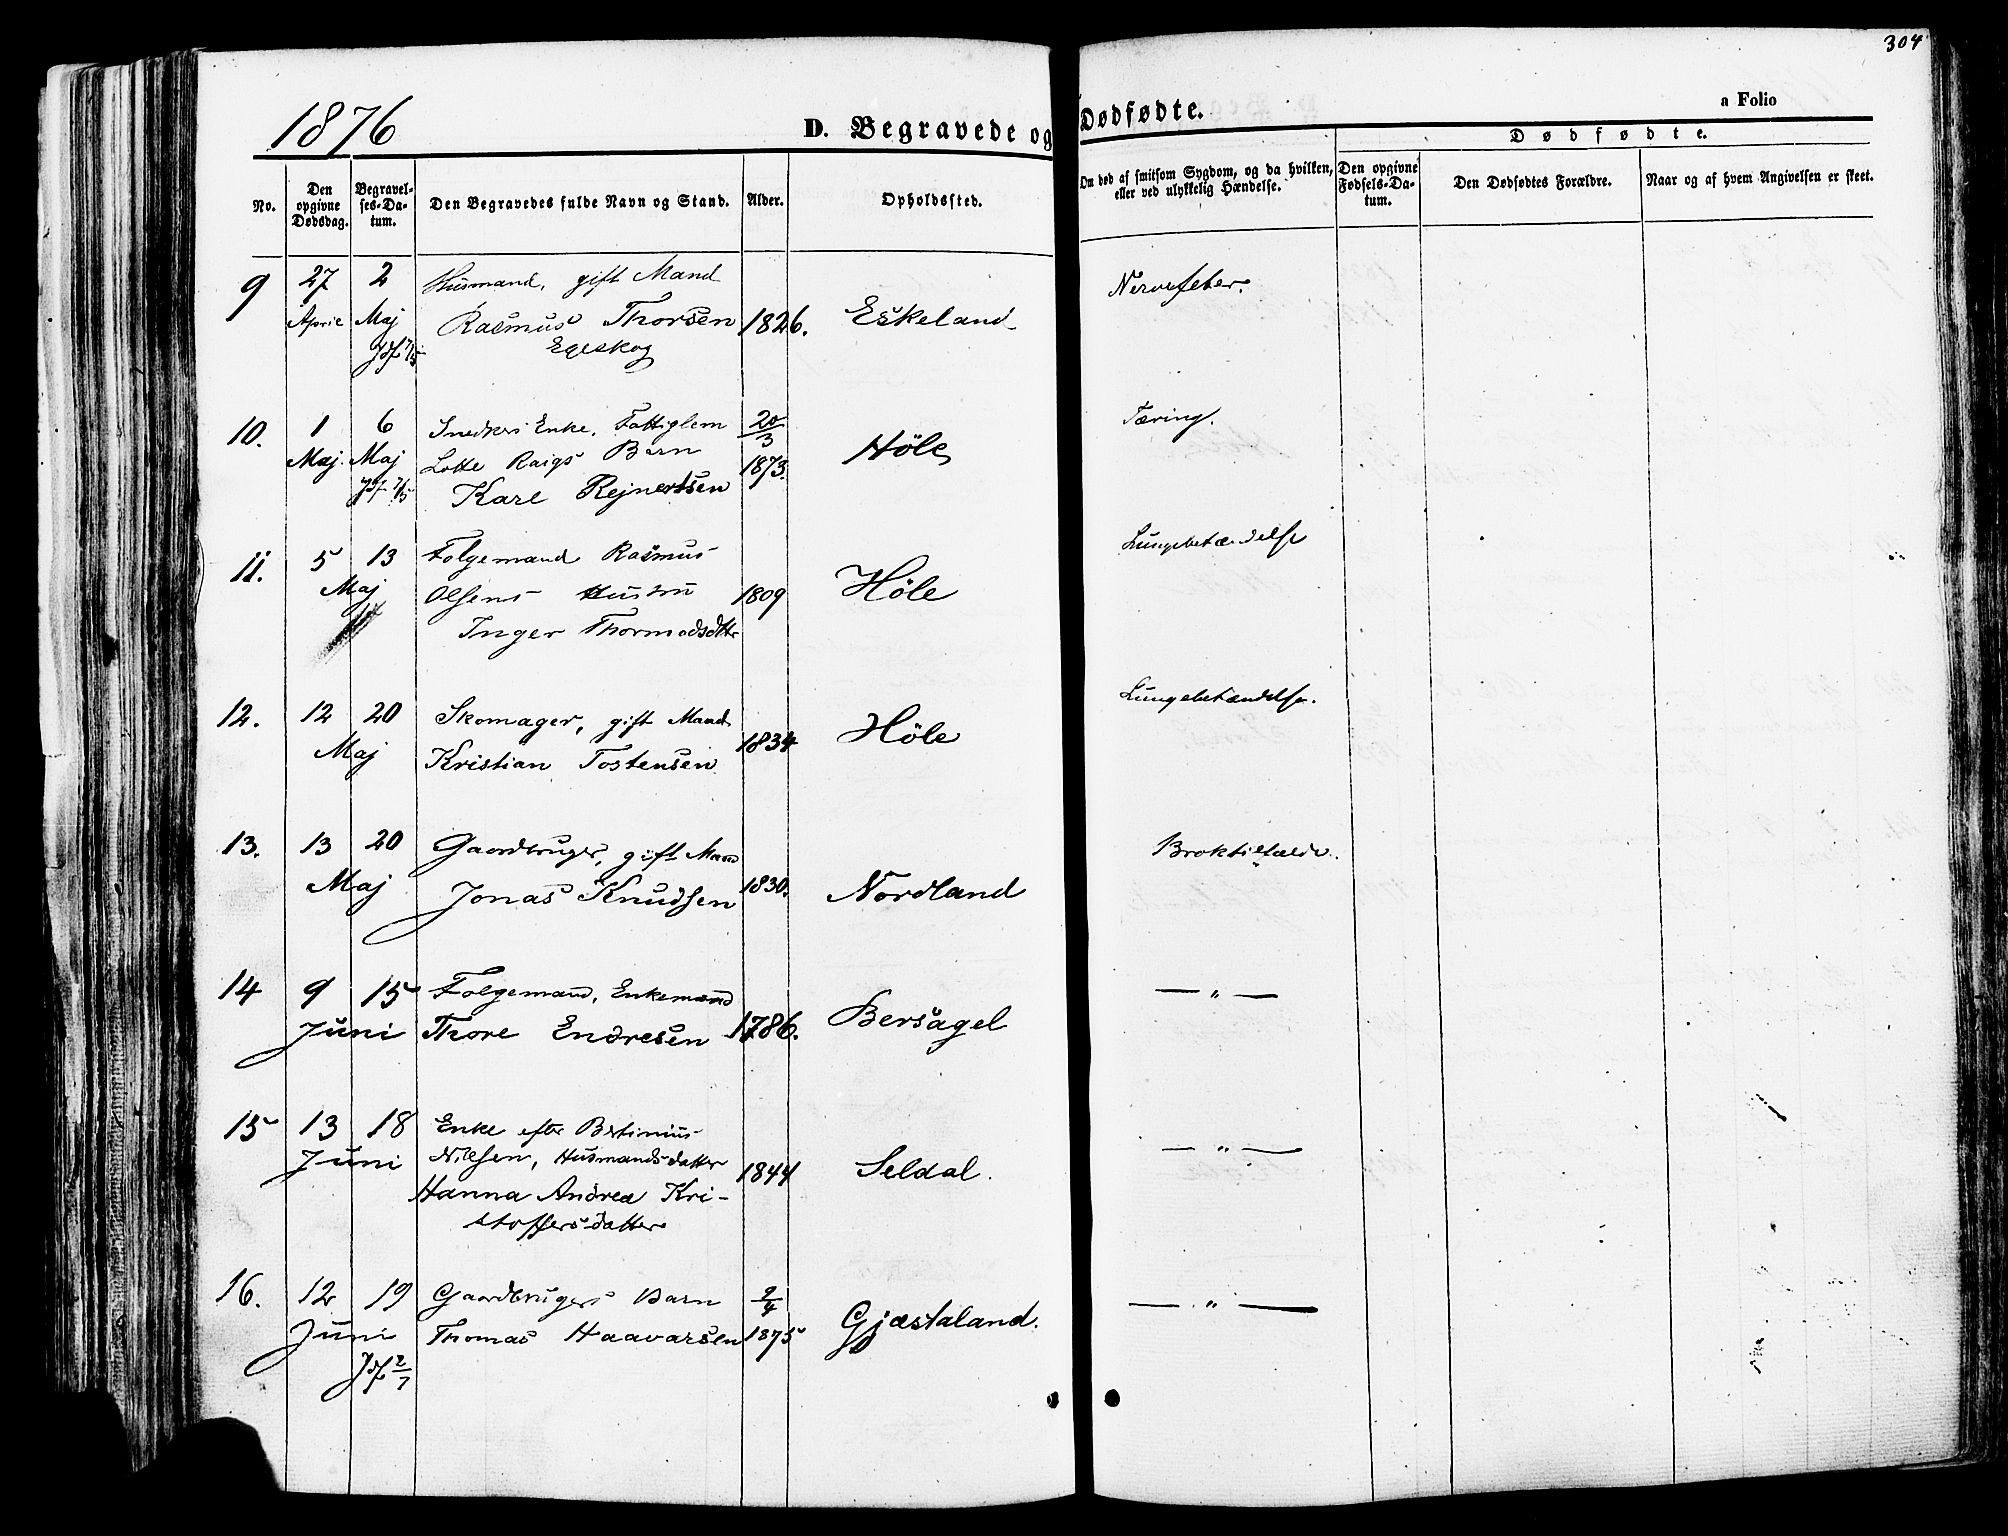 304
1876
D. Begravede og Dødfødte.
a Folio
No.
Den opgivne Dødsdag.
Begravelses-Datum.
Den Begravedes fulde Navn og Stand.
Alder.
Opholdssted.
Om død af smitsom Sygdom, og da hvilken,
eller ved ulykkelig Hændelse.
Dødfødte.
Den opgivne Fødsels-Datum.
Den Dødfødtes Forældre.
Naar og af hvem Angivelsen er skeet.
9 27 2 Husmand, gift Mand Nervefeber.
April Maj Rasmus Thorsen 1826. Eskeland
Jdf 7/5 Egeskog
10. 1 6 Snedkers Enke, Fattiglem 20/3 Tæring.
Maj. Maj Lotte Raigs Barn 1873. Høle
Jdf 7/5 Karl Rejnertsen
11. 5 13 Folgemand Rasmus Lungebetændelse
Maj Olsens Hustru 1809 Høle
Inger Thormodsdttr
12. 12 20 Skomager, gift Mand Høle Lungebetændelse.
Maj Kristian Tostensen 1834
13. 13 20 Gaardbruger, gift Mand Broktilfælde.
Maj Jonas Knudsen 1830. Nordland
14 9 15 Folgemand, Enkemand — " —
Juni Thore Endresen 1786. Bersagel
15 13 18 Enke efter Bertinius — " —
Juni Nilsen, Husmandsdatter 1844 Seldal.
Hanna Andrea Kri-
stoffersdatter
16. 12 19 Gaardbrugers Barn 2/4 — " —
Juni Thomas Haavarsen 1875 Gjæstaland.
Jdf 2/7